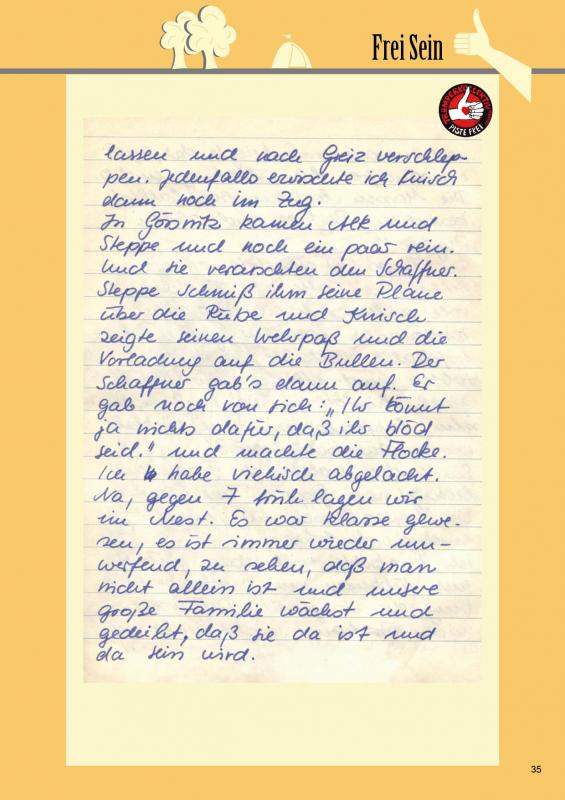 Frei Sein
TRAMPERKOLLEKTIV
PISTE FREI
lassen und nach Greiz verschlep-
pen. Jedenfalls erwischte ich Knisch
dann noch im Zug.
In Gößnitz kamen Alk und
Steppe und noch ein paar rein.
Und sie verarschten den Schaffner.
Steppe schmiß ihm seine Plane
über die Rübe und Knisch
zeigte seinen Wehrpaß und die
Vorladung auf die Bullen. Der
Schaffner gab's dann auf. Er
gab noch von sich: „Ihr könnt
ja nichts dafür, daß ihr blöd
seid." und machte die Flocke.
Ich habe viehisch abgelacht.
Na, gegen 7 früh lagen wir
im Nest. Es war Klasse gewe-
sen, es ist immer wieder um-
werfend, zu sehen, daß man
nicht allein ist und unsere
große Familie wächst und
gedeiht, daß sie da ist und
da sein wird.
35